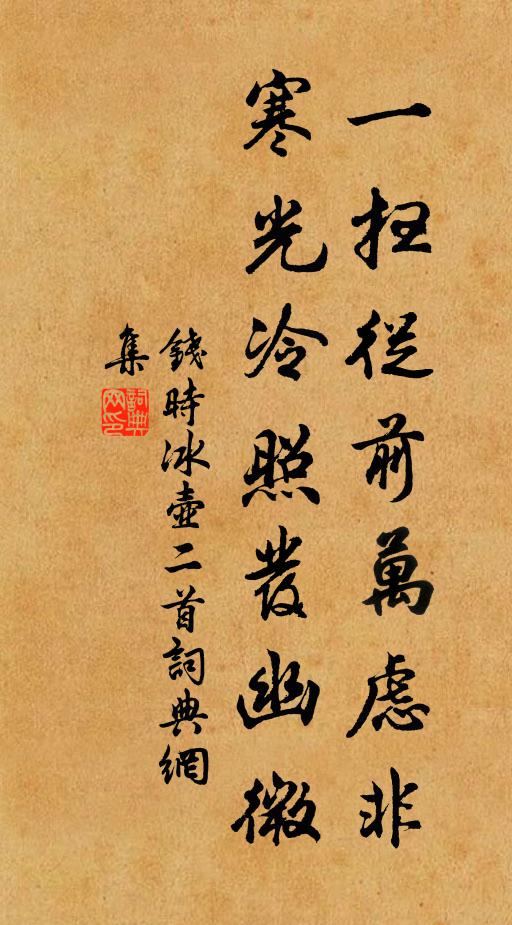 一扫從前萬慮非
寒光冷照發幽微
錢時冰壺二首詞典網
集
詞典
网印